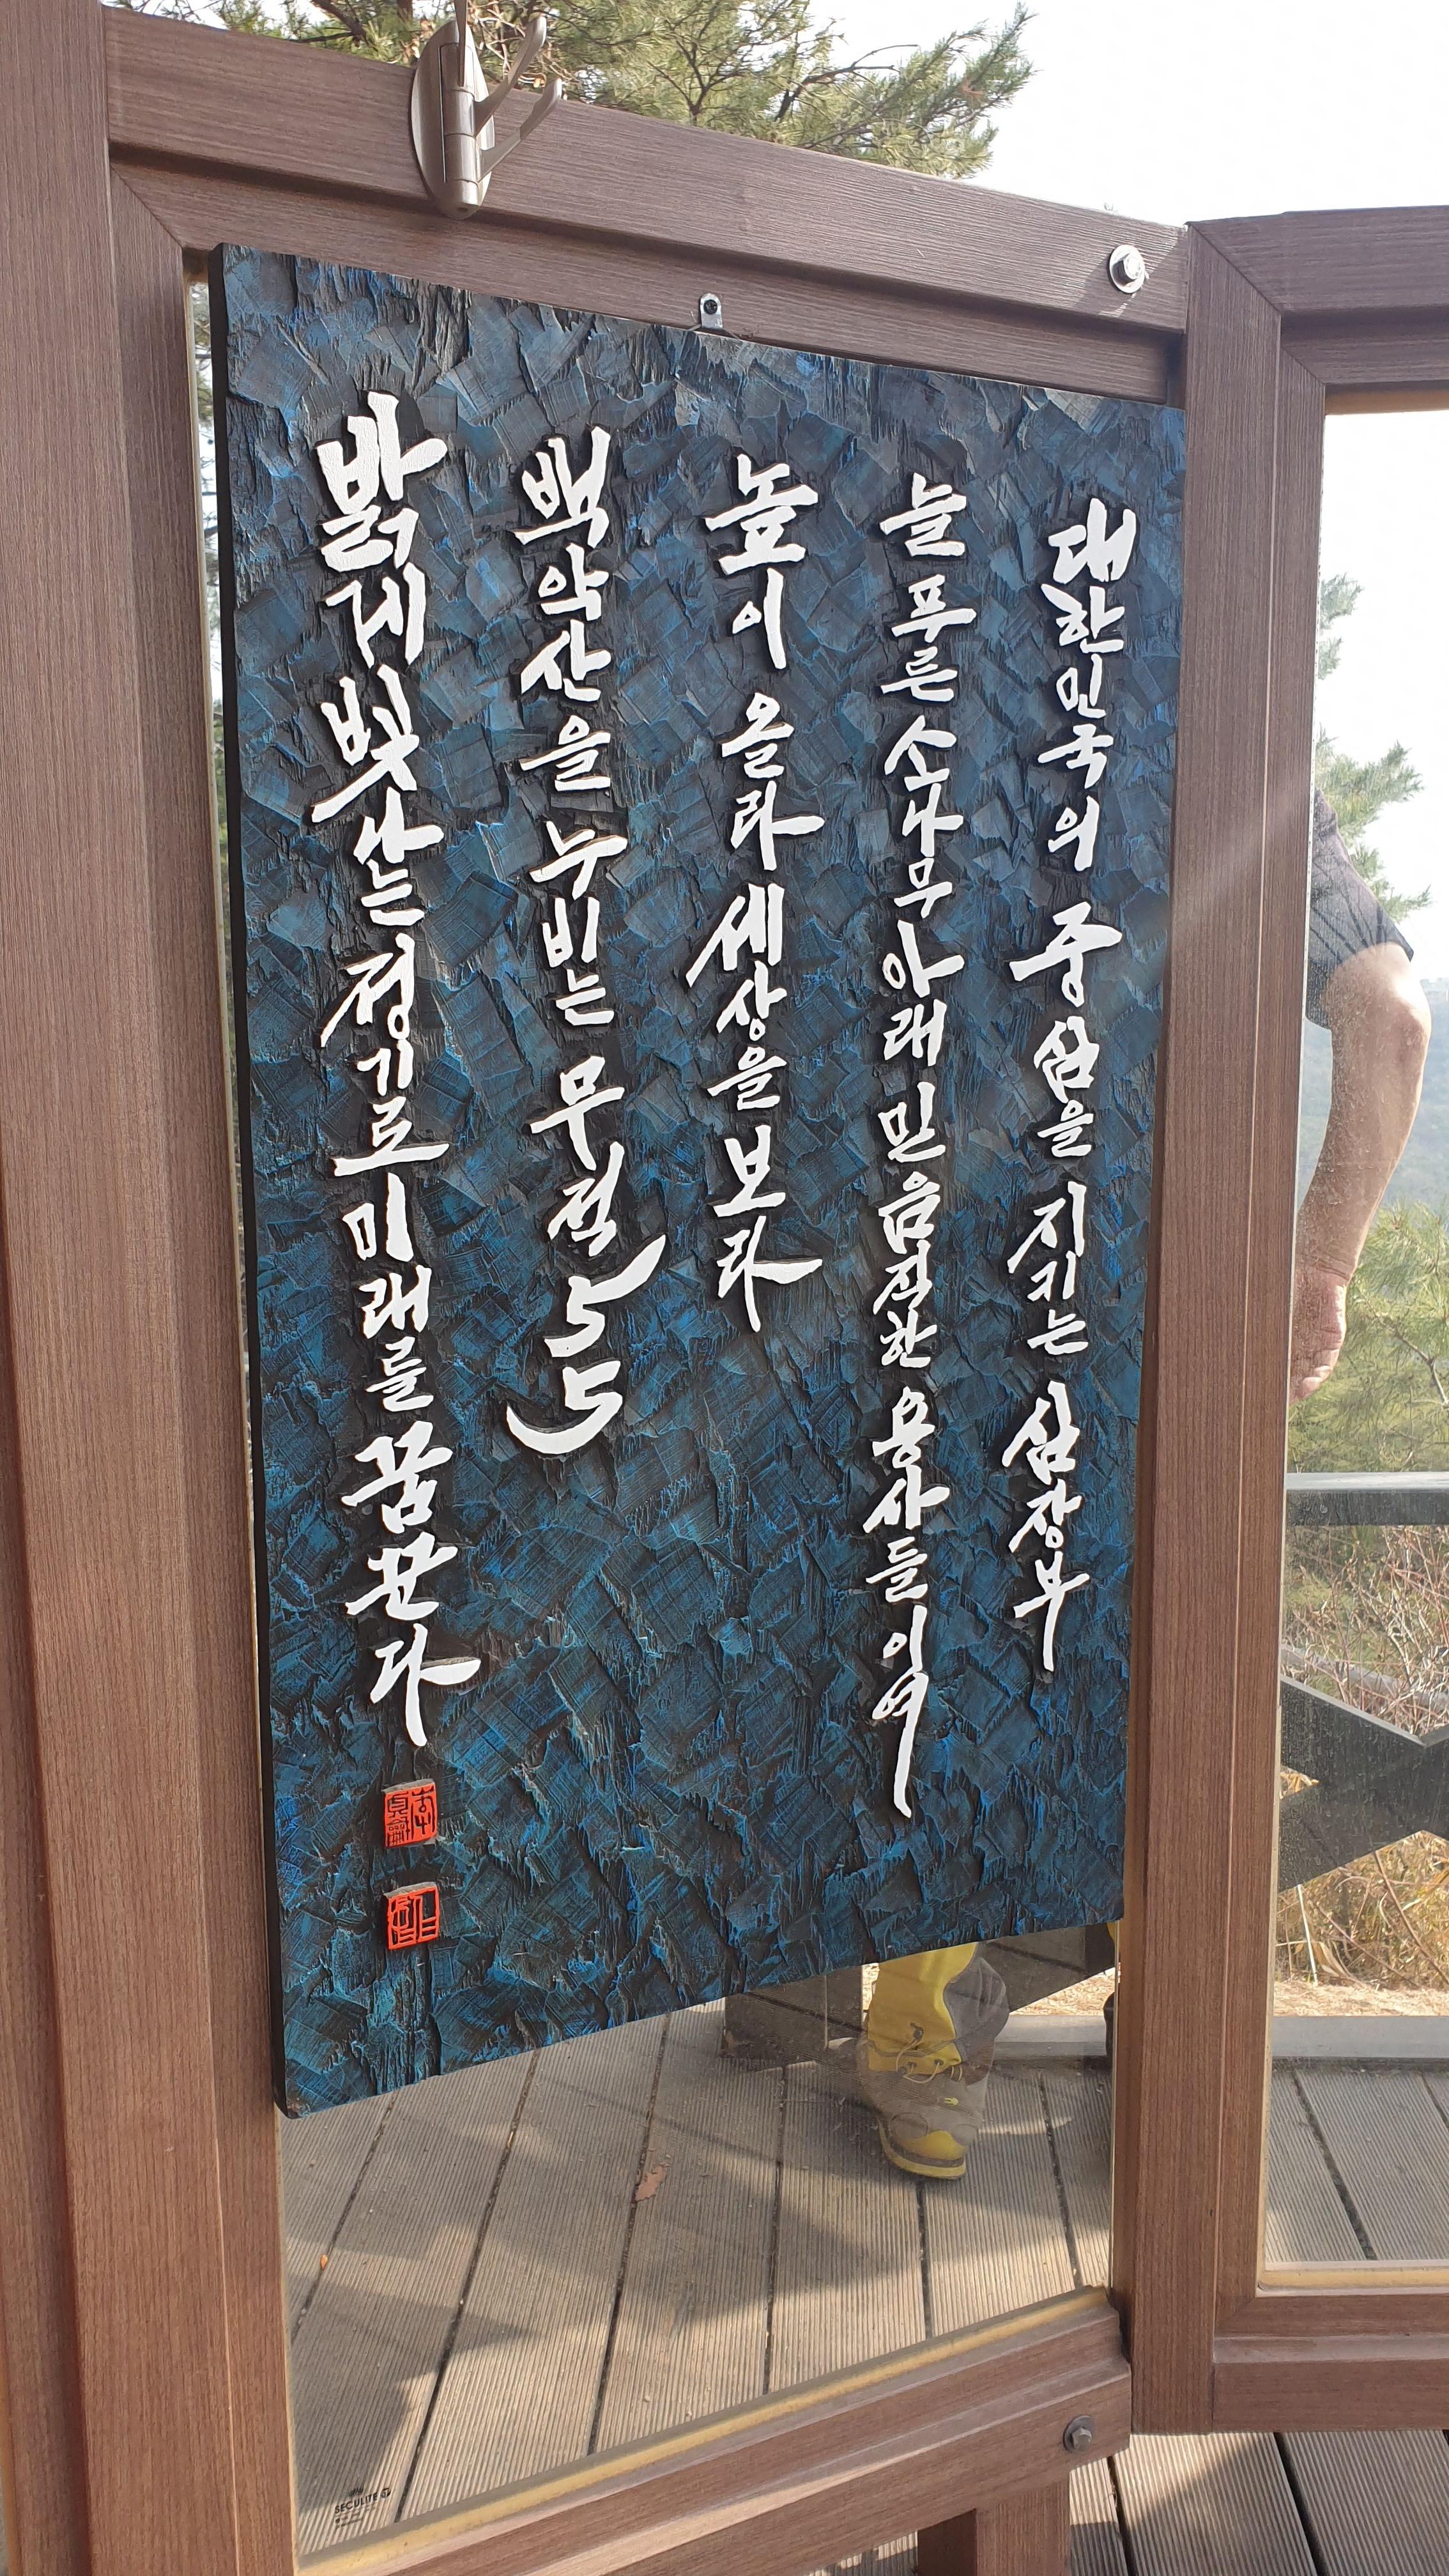 대한민국의 중심을 지키는 심장부
늘 푸른 소나무 아래 믿음직한 용사들이여
높이 올라 세상을 보라
백악산을 누비는 무적 55
밝게 빛나는 정기로 미래를 꿈꾼다
SECULITE